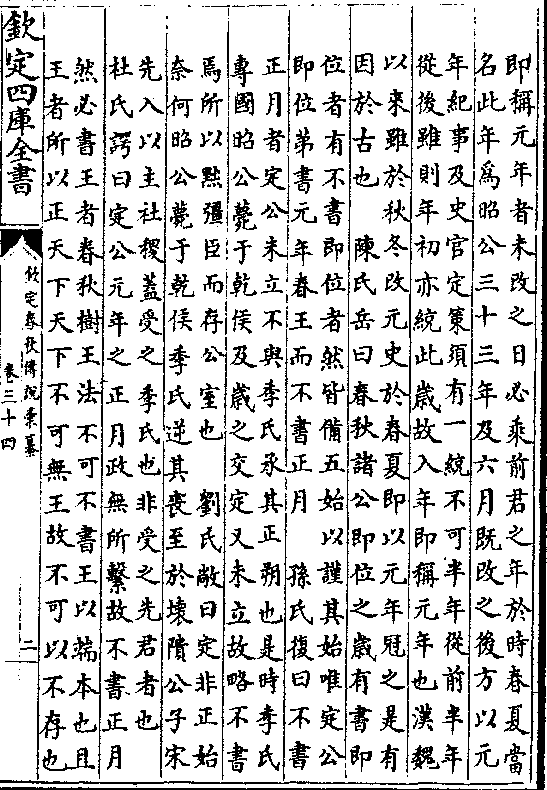 即稱元年者未改之日必乘前君之年於時春夏當
名此年為昭公三十三年及六月既改之後方以元
年紀事及史官定策須有一統不可半年從前半年
從後雖則年初亦統此歲故入年即稱元年也漢魏
以來雖於秋冬改元史於春夏即以元年冠之是有
因於古也　陳氏岳曰春秋諸公即位之歲有書即
位者有不書即位者然皆備五始以謹其始唯定公
即位第書元年春王而不書正月　孫氏復曰不書
正月者定公未立不與季氏承其正朔也是時季氏
專國昭公薨于乾侯及歲之交定又未立故略不書
焉所以黜彊臣而存公室也　劉氏敞曰定非正始
奈何昭公薨于乾侯季氏逆其喪至於壞隤公子宋
先入以主社稷蓋受之季氏也非受之先君者也
杜氏諤曰定公元年之正月政無所繫故不書正月
然必書王者春秋樹王法不可不書王以端本也且
王者所以正天下天下不可無王故不可以不存也
欽定四庫全書
欽定春秋傳説彙纂
卷三十四
二